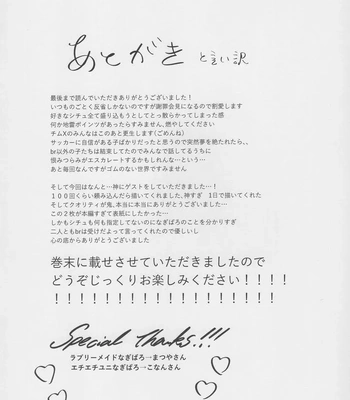 あとがき と言い訳
最後まで読んでいただきありがとうございました！
いつものごとく反省しかないのですが謝罪会見になるので割愛します
好きなシチュ全て盛り込もうとしてとっ散らかってしまった感
何か地雷ポインツがあったらすみません、燃やしてください
チムXのみんなはこのあと更生します(ごめんね)
サッカーに自信がある子ばかりだったと思うので突然夢を絶たれたら、、
br以外の子たちは結束してたのでみんなで話してるうちに
恨みつらみがエスカレートするかもしれんな…という…
あと毎回なんですがゴムのない世界ですみません
そして今回はなんと…神にゲストをしていただきました…！
１００回くらい頼み込んだら描いてくれました、神すぎ 1日で描いてくれた
そしてクオリティが鬼、本当に本当にありがとうございました…
この２枚が本編すぎて表紙にしたかった…
しかもシチュも何も指定してないのになぎばろのことを分かりすぎ
二人ともbrは受けだよって言ってくれたので優しいし
心の底からありがとうございました
巻末に載せさせていただきましたので
どうぞじっくりお楽しみください！！！！
！！！！！！！！！！！！！！！！！！
Special Thanks!!!
ラブリーメイドなぎばろ→まつやさん
エチエチユニなぎばろ→こなんさん